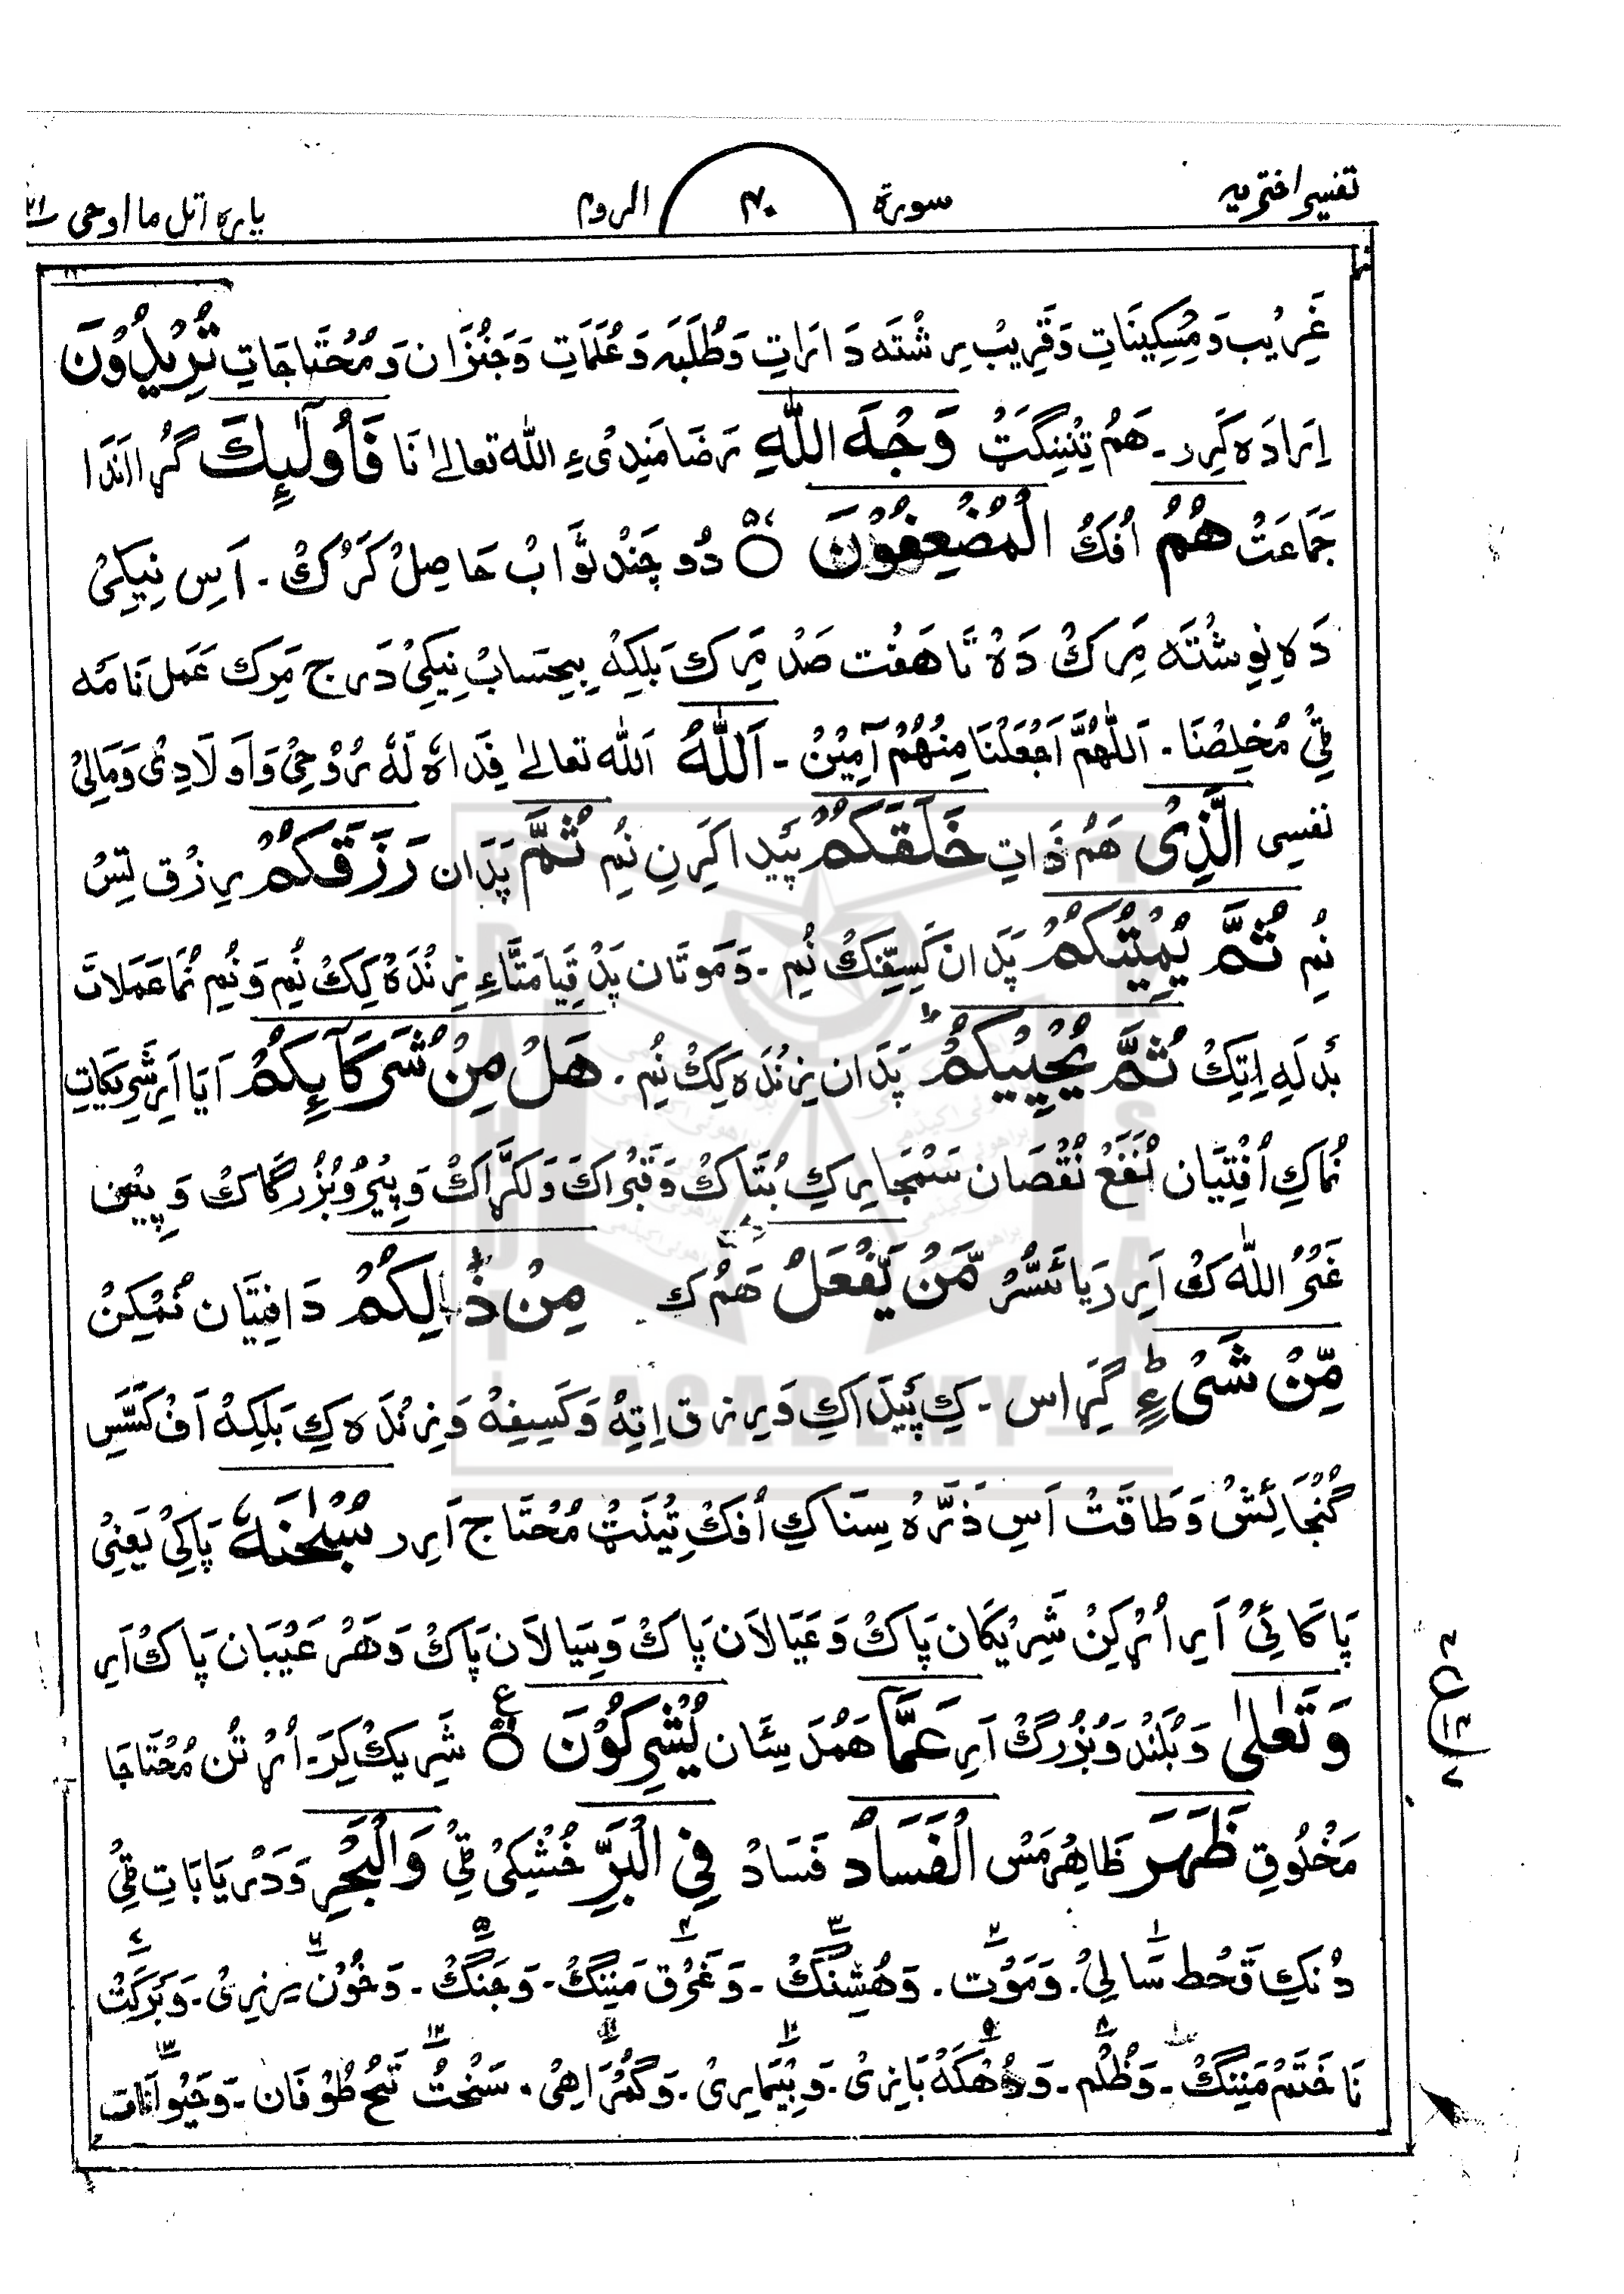 تفسیر اختریہ
سورة ۴۰ الروم
پارہ اتل ما اوحی ۲۱
غَرِیْب وَمِسْکِیْنَاتِ وَقَرِیْب رِشْتَہ دَارَاتِ وَطُلَبَہ وَعُلَمَاتِ وَجَنُزَان وَمُحْتَاجَاتِ تُرِیْدُوْنَ
اِرَادَہ کَرِر۔ ھَمُ تِنِنگَٹ وَجْهَ اللّٰهِ رَضَامَنْدِیْءِ اللّٰہ تعالیٰ نَا فَاُولٰٓئِكَ گُڑا اندَا
جَمَاعَتْ هُمُ اُفَکْ الْمُضْعِفُوْنَ ۝ دُو چَنْد ثَوَابْ حَاصِلْ کَرُکْ۔ اَسِ نِیکِیْ
دَہ نِوِشْتَہ مَرِکْ دَہ تَا ھَفْت صَدْ مَرِکَ بَلکِہ بِیحِسَابْ نِیکِیْ دَرج مَرِک عَمَل نَامَہ
ٹی مُخلِصْنَا۔ اَللّٰھُمَّ اَجْعَلْنَا مِنْھُمْ آمِیْنْ۔ اَللّٰهُ اَللّٰہ تعالیٰ فِدَاہٗ لَہٗ رُوْحِیْ وَاَولَادِیْ وَمَالِیْ
نفسِی الَّذِیْ ھَمُ ذَاتِ خَلَقَكُمْ پَیْدا کَرِنِ نُم ثُمَّ پَدَان رَزَقَكُمْ رِزْق تِسُ
نُم ثُمَّ یُمِیْتُكُمْ پَدَان کَسِفِکْ نُم۔ وَمَوتَان پَدْ قِیَامَتَّاءِ زِنْدَہ کِکْ نُم وَنُم نُمَا عَمَلَاتَ
بَدلَہ اِتِکْ ثُمَّ یُحْیِیْكُمْ پَدَان زِنْدَہ کِکْ نُم۔ هَلْ مِنْ شُرَكَآئِكُمْ اَیَا اَرِ شَرِیکَاتِ
نُمَا کِ اُفْتِیَان نَفَعْ نُقْصَان سَمْجَارِک بُتَاکْ وَقَبْرَاکَ وَلَکَّڑَاکْ وَپِیْر وَبُزُرگَاکْ وَ
غَیْرُ اللّٰہ کْ اَرِ مَّنْ یَّفْعَلُ ھَمُ کِ مِنْ ذٰلِكُمْ دَافِتِیَان نُمْکِنْ
مِّنْ شَیْءٍ ؕ گِڑَاس۔ کِ پَیْدَا کِ وَرِزق اِتِہ وَکَسِفِہ وَزِنْدَہ کِ بَلکِہ اَفْ کَسَّسِ
گُنْجَائِشْ وَطَاقَتْ اَسِ ذَرَّہ سِنَا کِ اُفَکْ تِینَٹ مُحْتَاج اَرِر سُبْحٰنَهٗ پَاکِیْ یَعنِیْ
پَاکَائِیْ اَرِ اُڑکِنْ شَرِیْکَان پَاکْ وَعَیَالَان پَاکْ وَسِیَالَان پَاکْ وَھَرْ عَیْبَان پَاکْ اَرِ
وَتَعٰلٰى وَبُلَنْد وَبُزُرگْ اَرِ عَمَّا ھَمُدَ سِتَان یُشْرِكُوْنَ ۝ ع شَرِیکْ کَرَ۔ اُڑتُن مُحْتَاجَا
مَخْلُوقِ ظَهَرَ ظَاھِرْ مَسْ الْفَسَادُ فَسَادْ فِی الْبَرِّ خُشْکِیْ ٹی وَالْبَحْرِ وَدَرْیَابَاتِ ٹی
دُنکِ قَحْط سَالِیْ۔ وَمَوْت۔ وَھُشِنْگْ۔ وَغَرْق مَنِنگْ۔ وَجَنْگْ۔ وَخُوْن رِیْزِیْ۔ وَبَرَکَتْ
نَا خَتَمْ مَنِنگْ۔ وَظُلْم۔ وَدُھْکَہ بَازِیْ۔ وَبِیْمَارِیْ۔ وَگُمْرَاھِیْ۔ سَخْت تَحُ طُوْفَان۔ وَحَیْوَانَات
BRAHUI ACADEMY PAKISTAN